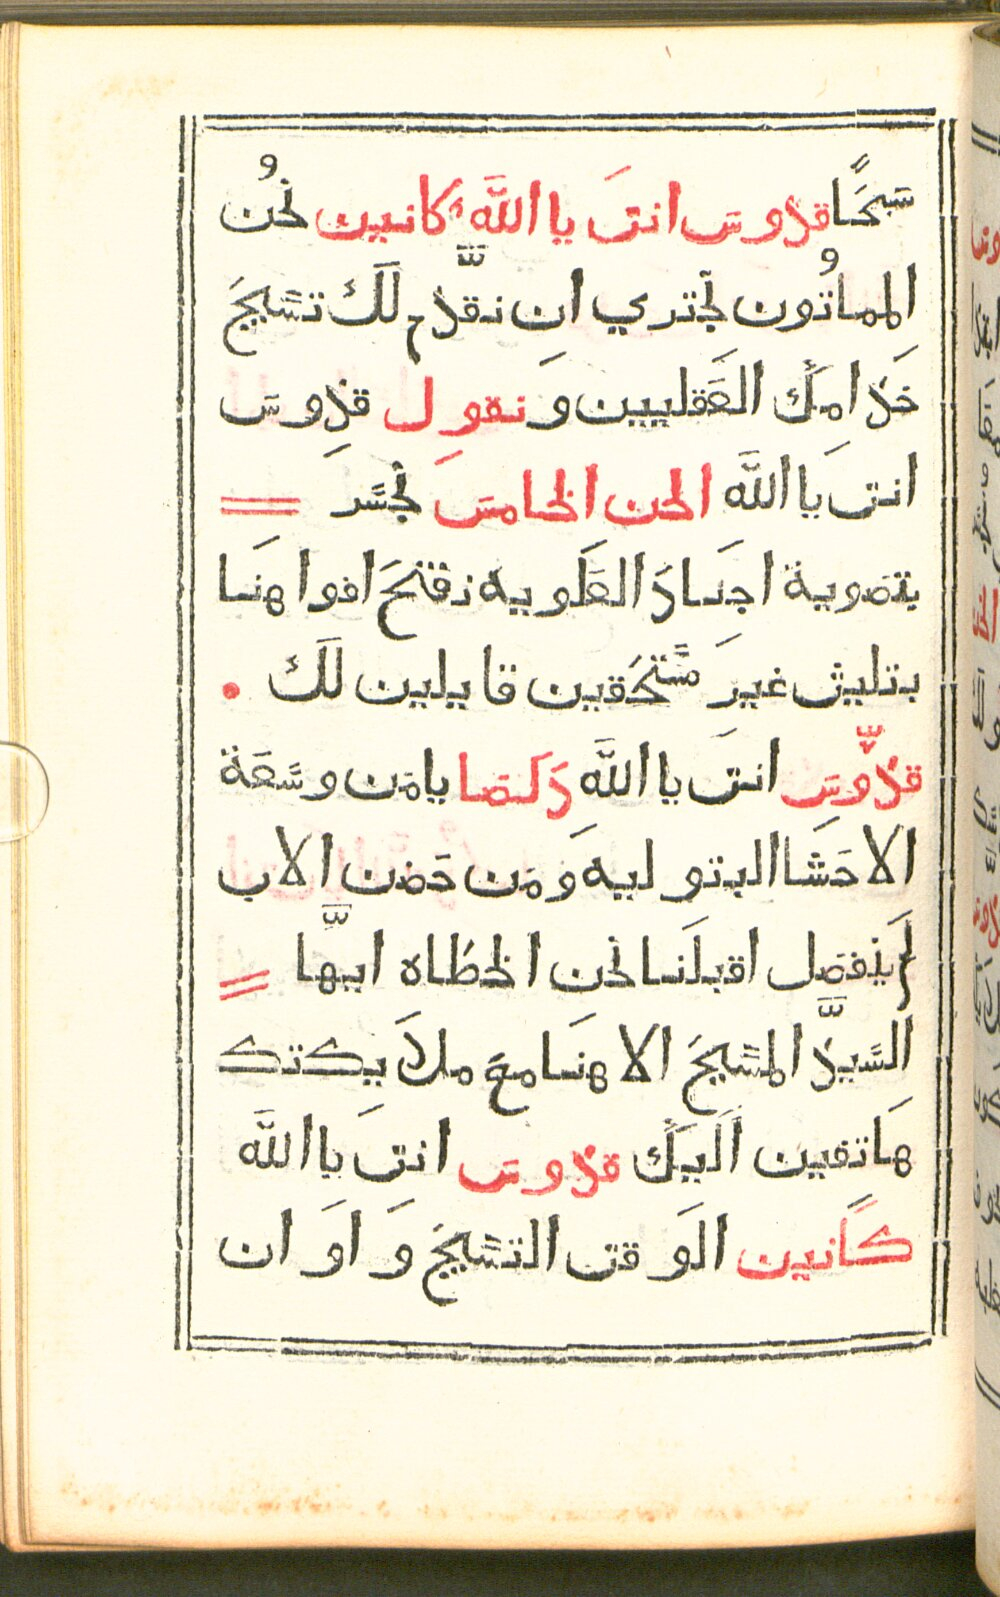 سبحًا قدوس انت يا الله كانين نحنُ
المماتُون نجتري ان نقدّم لك تسبيح
خدامك العقليين و نقول قدوس
انت يا الله الحن الخامس نجسر
بتصوية اجناد العلويه نفتح افواهنا
بتليث غير مستحقين قايلين لك
قدّوس انت يا الله دكصا يا من وسعة
الاحشا البتوليه ومن حضن الاب
لم ينفصل اقبلنا نحن الخطاه ايّها
السيّد المسيح الاهنا مع ملايكتك
هاتفين اليك قدوس انت يا الله
كانين الوقت التسبيح و اوان